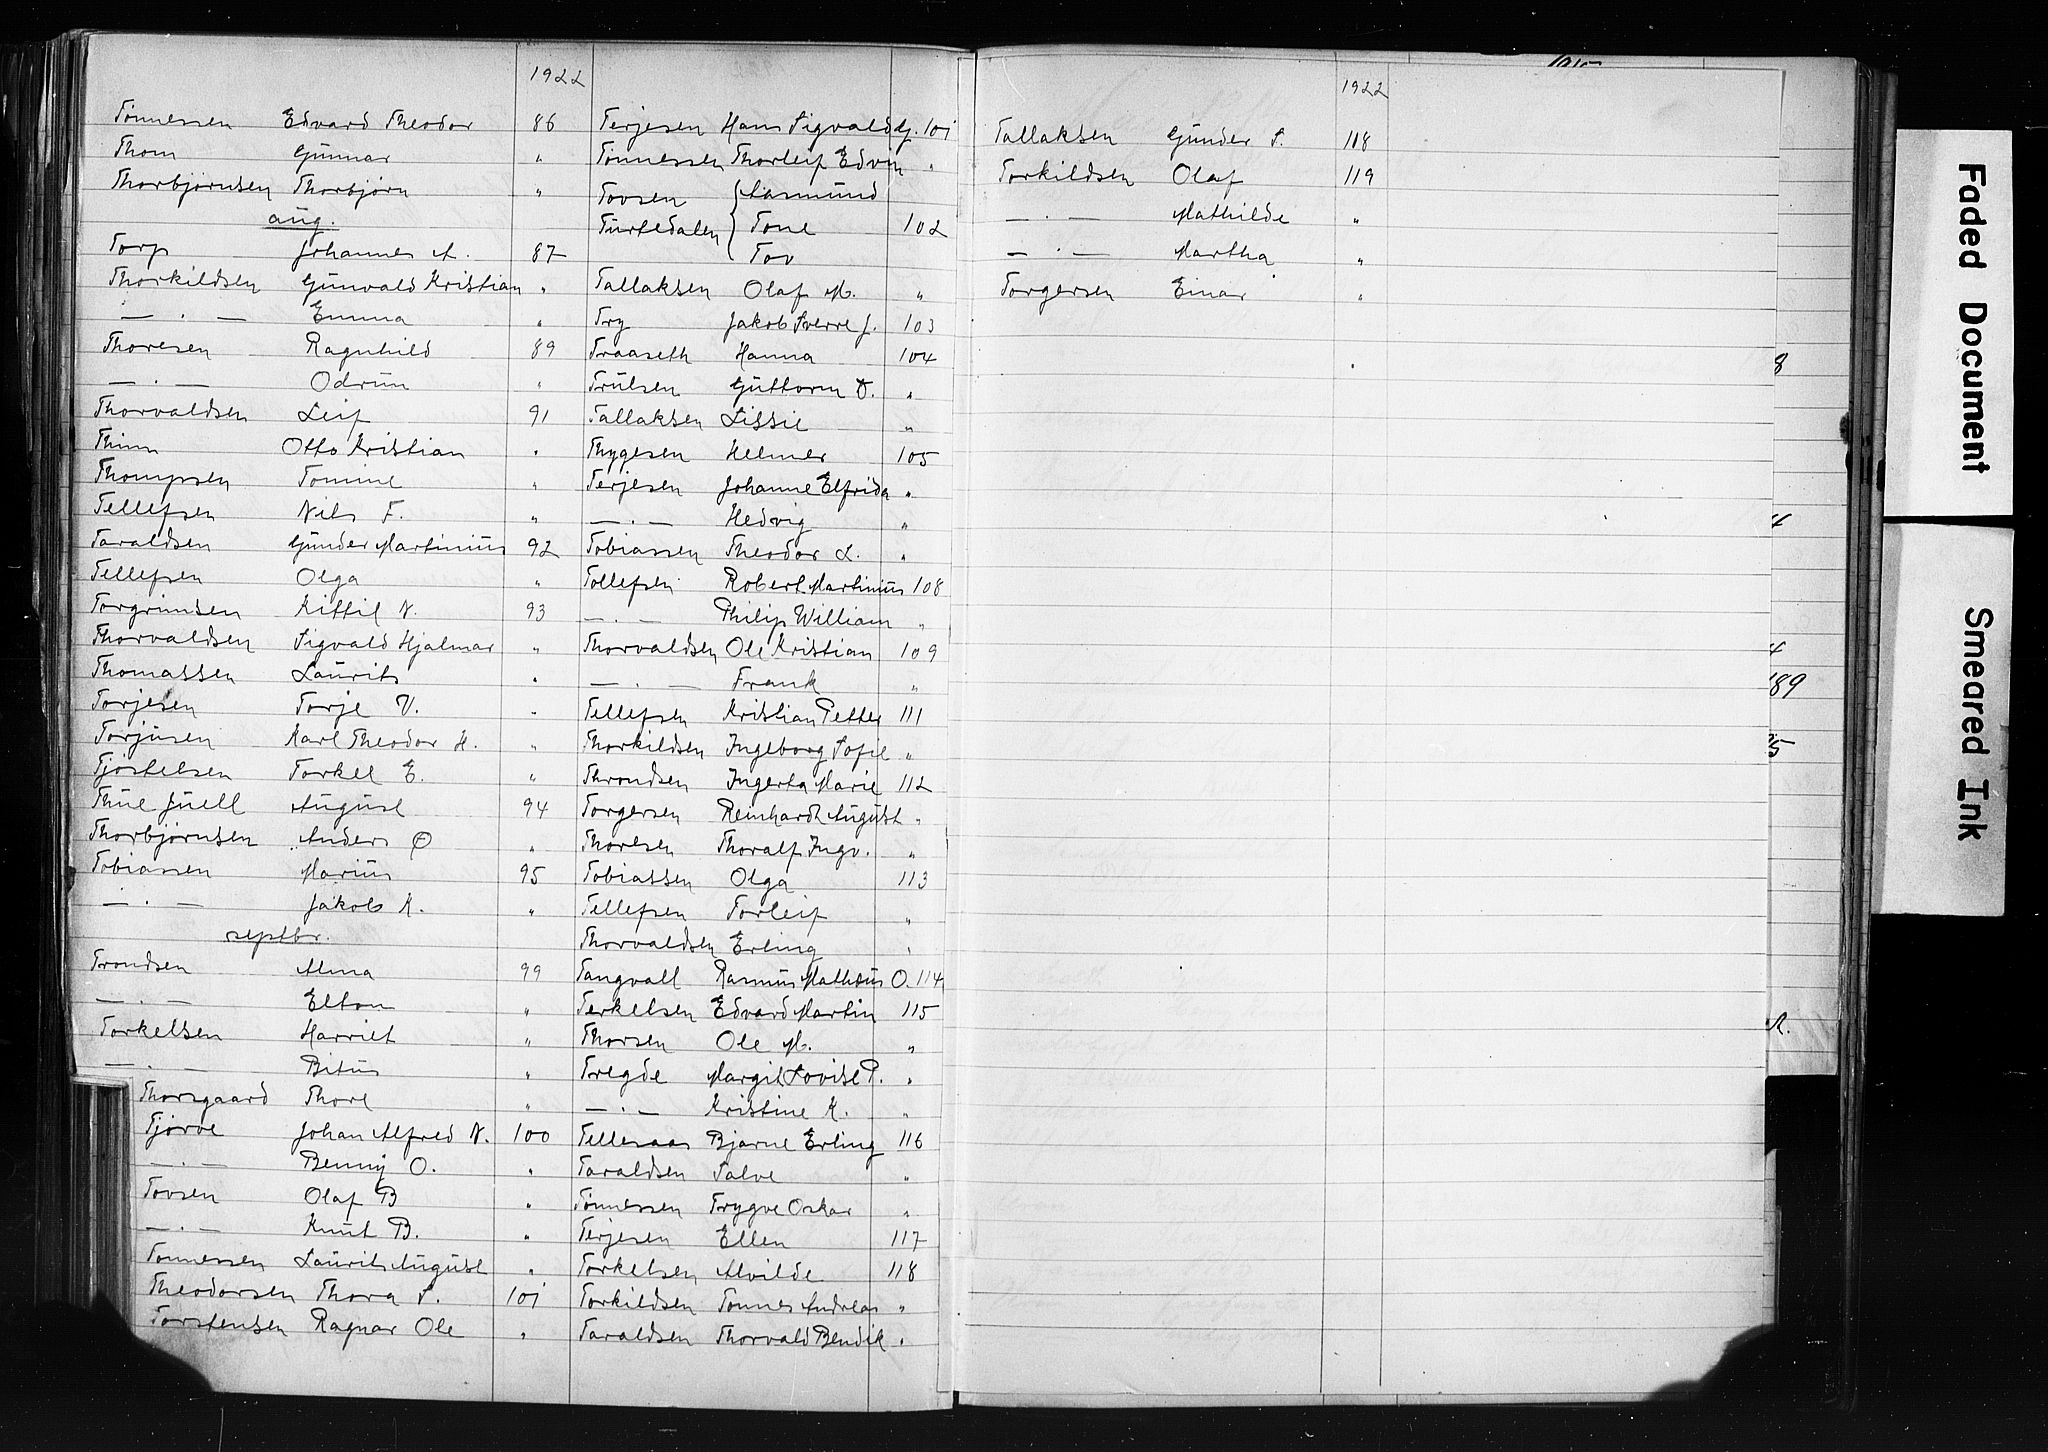 1922
Tönnessen Edvard Theodor 86
Thom Gunnar "
Thorbjörnsen Thorbjörn "
aug.
Torp Johannes A. 87
Thorkildsen Gunvald Kristian "
— . — Emma "
Thoresen Ragnhild 89
— . — Odrun "
Thorvaldsen Leif 91
Thim Otto Kristian "
Thompsen Tomine "
Tellefsen Nils F. "
Taraldsen Gunder Martinius 92
Tellefsen Olga "
Torgrimsen Kittil N. 93
Thorvaldsen Sigvald Hjalmar "
Thomassen Laurits "
Torjesen Torje V. "
Torjusen Karl Theodor H. "
Tjöstelsen Torkel E. "
Thue Juell August 94
Thorbjørnsen Anders Ø "
Tobiassen Marius 95
— . — Jakob K. "
septbr.
Trondsen Alma 99
— . — Elton "
Torkelsen Harriet "
— . — Bitus "
Thorsgaard Thore "
Tjörve Johan Alfred N. 100
— . — Benny O. "
Tovsen Olaf B "
— . — Knut B. "
Tönnessen Laurits August "
Theodorsen Thora S. 101
Torstensen Ragnar Ole "
Terjesen Hans Sigvald G. 101
Tönnessen Thorleif Edvin "
Tovsen Aasmund
Turtedalen Tone 102
Tov
Tallaksen Olaf M. "
Try Jakob Sverre J. 103
Traaseth Hanna 104
Trulsen Guttorm D. "
Tallaksen Lissie "
Thygesen Helmer 105
Terjesen Johanne Elfrida "
— . — Hedvig "
Tobiassen Theodor L. "
Tollefsen Robert Martinius 108
— . — Philip William "
Thorvaldsen Ole Kristian 109
— . — Frank "
Tellefsen Kristian Petter 111
Thorkildsen Ingeborg Sofie "
Throndsen Ingerta Marie 112
Torgersen Reinhardt August "
Thoresen Thoralf Ingv. "
Tobiassen Olga 113
Tellefsen Torleif "
Thorvaldsen Erling "
Tangvall Rasmus Mathæus O. 114
Terkelsen Edvard Martin 115
Thorsen Ole M. "
Tregde Margit Lovise P. "
— . — Kristine K. "
Tellesaas Bjarne Erling 116
Taraldsen Salve "
Tönnessen Trygve Oskar "
Terjesen Ellen 117
Torkelsen Alvilde 118
Torkildsen Tönnes Andreas "
Taraldsen Thorvald Bendik "
1922
Tallaksen Gunder S. 118
Torkildsen Olaf 119
— . — Mathilde "
— . — Martha "
Torgersen Einar "
8
4
4
89
5
R.
Faded Document
Smeared Ink